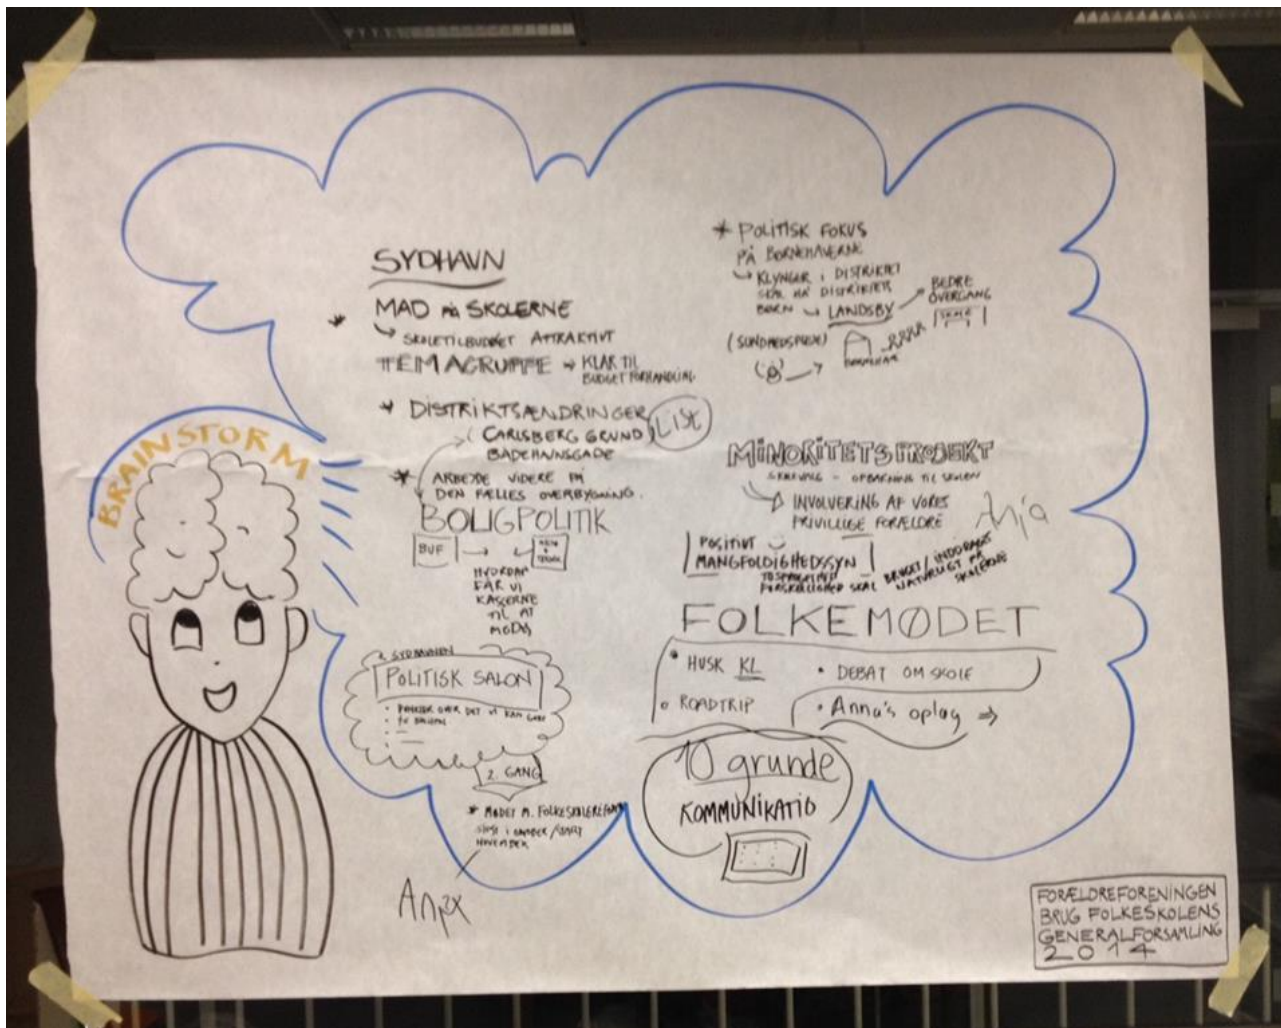 BRAINSTORM
SYDHAVN
MAD PÅ SKOLERNE
SKOLETILBUDDET ATTRAKTIVT
TEMAGRUPPE → KLAR TIL
BUDGETFORHANDLING
* DISTRIKTSÆNDRINGER
LIST
( CARLSBERG GRUND
* ARBEJDE VIDERE PÅ
DEN FÆLLES OVERBYGNING.
BOLIGPOLITIK
BUF
HVORDAN
FÅR VI
KASSERNE
TIL AT
MØDES
SYDHAVNEN
POLITISK SALON
2. GANG
NOVEMBER
* POLITISK FOKUS
PÅ BØRNEHAVERNE
KLYNGER I DISTRIKTET
SKAL HA DISTRIKTETS
BØRN → LANDSBY
BEDRE
OVERGANG
SKOLE
MINORITETSPROJEKT
SKOLEVALG - OPBAKNING TIL SKOLEN
INVOLVERING AF VORES
FRIVILLIGE FORÆLDRE
Anja
POSITIVT
MANGFOLDIGHEDSSYN
FORSKELLIGHED SKAL
BRUGES/INDDRAGES
NATURLIGT PÅ
SKOLERNE
FOLKEMØDET
• HUSK KL
• DEBAT OM SKOLE
• ROADTRIP
• Anna's oplæg ⇒
10 grunde
KOMMUNIKATIO
FORÆLDREFORENINGEN
BRUG FOLKESKOLENS
GENERALFORSAMLING
2014